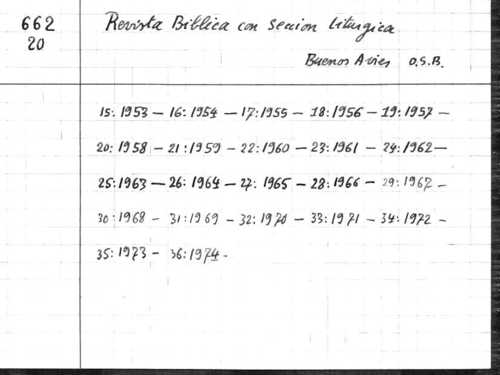 662
20
Revista Biblica con secion liturgica
Buenos Aires O.S.B.
15: 1953 – 16: 1954 – 17: 1955 – 18: 1956 – 19: 1957 –
20: 1958 – 21: 1959 – 22: 1960 – 23: 1961 – 24: 1962 –
25: 1963 – 26: 1964 – 27: 1965 – 28: 1966 – 29: 1967 –
30: 1968 – 31: 1969 – 32: 1970 – 33: 1971 – 34: 1972 –
35: 1973 – 36: 1974 –